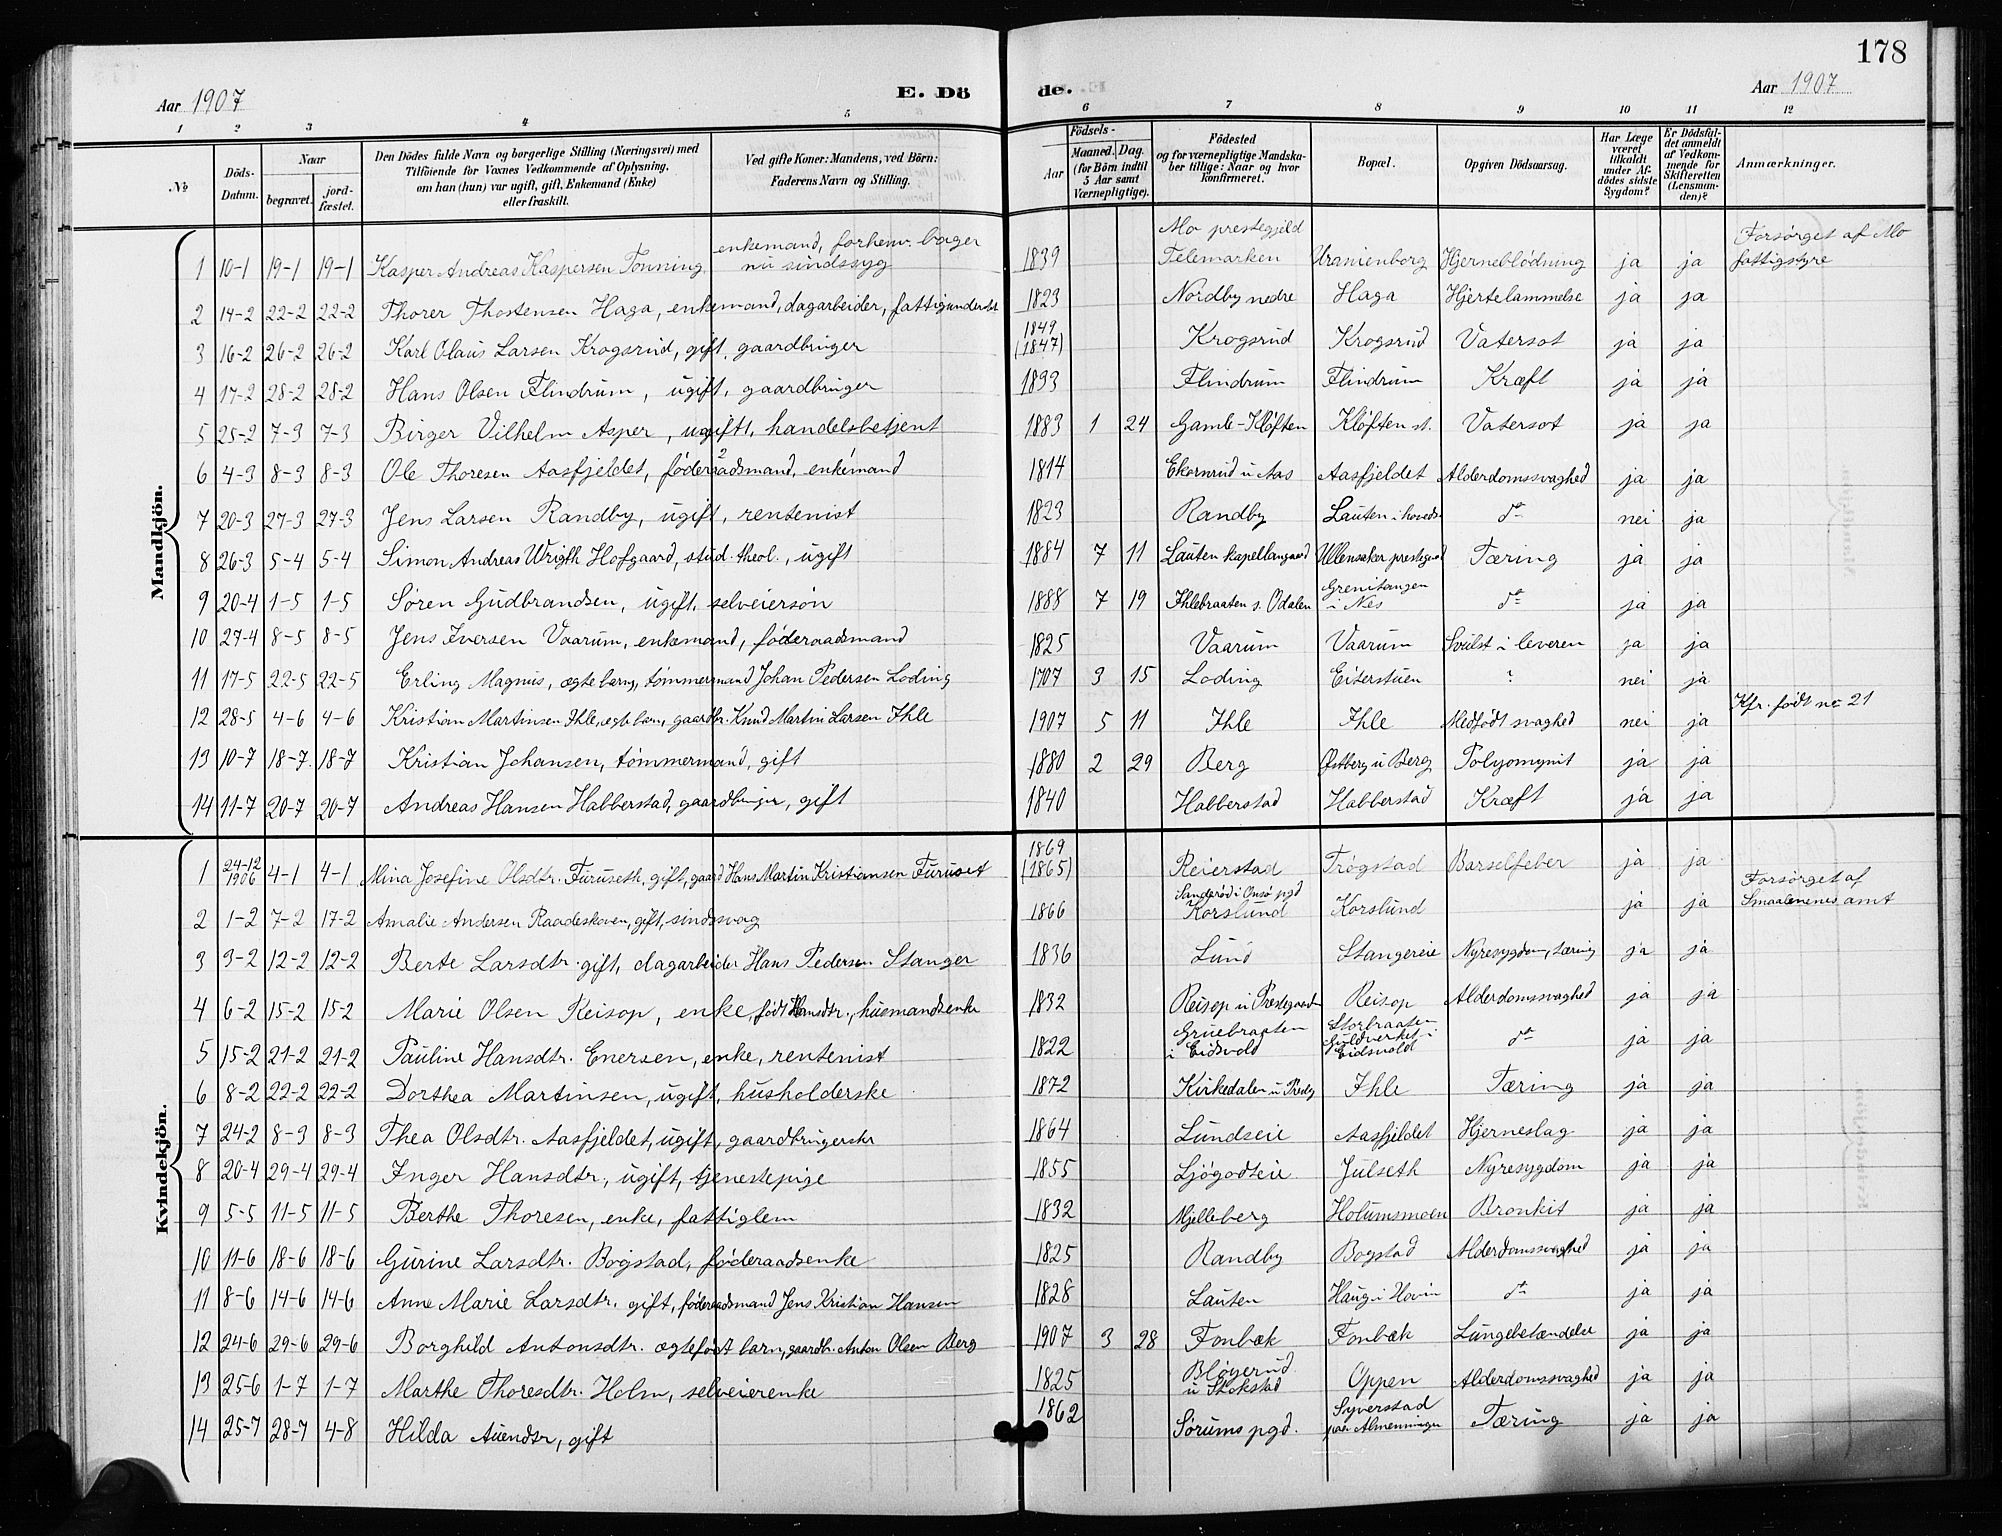 178
Aar 1907
E. Dö
de.
Aar 1907
1 2 3 4 5 6 7 8 9 10 11 12
№
Döds-Datum.
Naar
begravet.
jord-fæstet.
Den Dödes fulde Navn og borgerlige Stilling (Næringsvei) med
Tilföiende for Voxnes Vedkommende af Oplysning,
om han (hun) var ugift, gift, Enkemand (Enke)
eller fraskilt.
Ved gifte Koner: Mandens, ved Börn:
Faderens Navn og Stilling.
Födsels-
Aar
Maaned. Dag.
(for Börn indtil
5 Aar samt
Værnepligtige).
Födested
og for værnepligtige Mandska-
ber tillige: Naar og hvor
konfirmeret.
Bopæl.
Opgiven Dödsaarsag.
Har Læge
været
tilkaldt
under Af-
dödes sidste
Sygdom?
Er Dödsfal-
det anmeldt
af Vedkom-
mende for
Skifteretten
(Lensman-
den)?
Anmærkninger.
Mandkjön.
1 10-1 19-1 19-1 Kasper Andreas Kaspersen Tonning enkemand, forhenv. bager nu sindssyg 1839 Mo prestegjeld Telemarken Uranienborg Hjerneblödning ja ja Forsörget af Mo fattigstyre
2 14-2 22-2 22-2 Thorer Thostensen Haga, enkemand, dagarbeider, fattigunderst 1823 Nordby nedre Haga Hjertelammelse ja ja
3 16-2 26-2 26-2 Karl Olaus Larsen Krogsrud, gift, gaardbruger 1849 (1847) Krogsrud Krogsrud Vatersot ja ja
4 17-2 28-2 28-2 Hans Olsen Flindrum, ugift, gaardbruger 1833 Flindrum Flindrum Kræft ja ja
5 25-2 7-3 7-3 Birger Vilhelm Asper, ugift, handelsbetjent 1883 1 24 Gamle-Kløften Kløften st. Vatersot ja ja
6 4-3 8-3 8-3 Ole Thoresen Aasfjeldet, føderaadsmand, enkemand 1814 Ekornrud u Aas Aasfjeldet Alderdomssvaghed ja ja
7 20-3 27-3 27-3 Jens Larsen Randby, ugift, rentenist 1823 Randby Lauten i hoveds. do nei ja
8 26-3 5-4 5-4 Simon Andreas Wrigth Hofgaard, stud. theol., ugift 1884 7 11 Lauten kapellangaard Ullensaker prestegaard Tæring ja ja
9 20-4 1-5 1-5 Søren Gudbrandsen, ugift, selveiersøn 1888 7 19 Ihlebraaten s. Odalen Grenitangen i Nes do ja ja
10 27-4 8-5 8-5 Jens Iversen Vaarum, enkemand, føderaadsmand 1825 Vaarum Vaarum Svulst i leveren ja ja
11 17-5 22-5 22-5 Erling Magnus, ægte barn, tømmermand Johan Pedersen Loding 1907 3 15 Loding Eiterstuen ? nei ja
12 28-5 4-6 4-6 Kristian Martinsen Ihle, ægte barn, gaardbr. Knud Martin Larsen Ihle 1907 5 11 Ihle Ihle Medfødt svaghed nei ja Kfr. født no 21
13 10-7 18-7 18-7 Kristian Johansen, tømmermand, gift 1880 2 29 Berg Østberg u Berg Polyomynit ja ja
14 11-7 20-7 20-7 Andreas Hansen Habberstad, gaardbruger, gift 1840 Habberstad Habberstad Kræft ja ja
Kvindekjön.
1 24-12 1906 4-1 4-1 Mina Josefine Olsdtr. Furuseth, gift, gaard Hans Martin Kristiansen Furuset 1869 (1865) Reierstad Trøgstad Barselfeber ja ja
2 1-2 7-2 17-2 Amalie Andersen Raadeskoven, gift, sindssvag 1866 Sanderød i Onsø pgd Korslund Korslund ja ja Forsørget af Smaalenenes amt
3 3-2 12-2 12-2 Berte Larsdtr. gift, dagarbeider Hans Pedersen Stanger 1836 Lund Stangereie Nyresygdom, tæring ja ja
4 6-2 15-2 15-2 Marie Olsen Reisop, enke, født Hansdtr., husmandsenke 1832 Reisop u Prestegaarden Reisop Alderdomssvaghed ja ja
5 15-2 21-2 21-2 Pauline Hansdtr. Enersen, enke, rentenist 1822 Gruebraaten i Eidsvold Storbraaten Guldverket i Eidsvold do ja ja
6 8-2 22-2 22-2 Dorthea Martinsen, ugift, husholderske 1872 Kirkedalen u Prestg Ihle Tæring ja ja
7 24-2 8-3 8-3 Thea Olsdtr. Aasfjeldet, ugift, gaardbrugerske 1864 Lundseie Aasfjeldet Hjerneslag ja ja
8 20-4 29-4 29-4 Inger Hansdtr, ugift, tjenestepige 1855 Ljøgodteie Julseth Nyresygdom ja ja
9 5-5 11-5 11-5 Berthe Thoresen, enke, fattiglem 1832 Mjelleberg Holumsmoen Bronkit ja ja
10 11-6 18-6 18-6 Gurine Larsdtr. Bogstad, føderaadsenke 1825 Randby Bogstad Alderdomssvaghed ja ja
11 8-6 14-6 14-6 Anne Marie Larsdtr. gift, føderaadsmand Jens Kristian Hansen 1828 Lauten Haug i Hovin do ja ja
12 24-6 29-6 29-6 Borghild Antonsdtr. ægtefødt barn, gaardbr. Anton Olsen Berg 1907 3 28 Fonbæk Fonbæk Lungebetændelse ja ja
13 25-6 1-7 1-7 Marthe Thoresdtr. Holm, selveierenke 1825 Bløyerud u Stokstad Oppen Alderdomssvaghed ja ja
14 25-7 28-7 4-8 Hilda Auendtr, gift 1862 Sørums pgd. Syverstad paa Almenningen Tæring ja ja